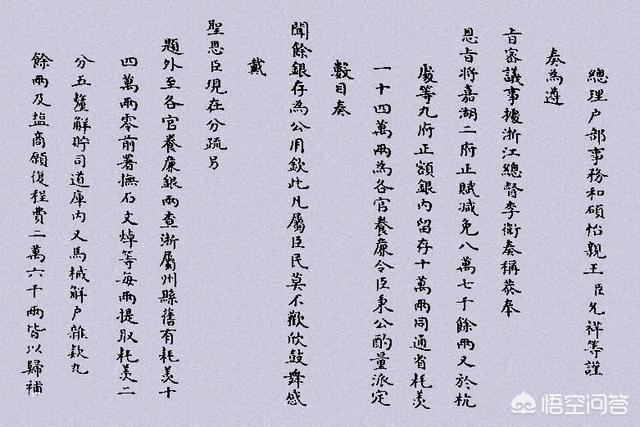 總理户部事務和碩怡親王臣允祥等謹
奏為遵
旨審議事據浙江總督李衛奏稱恭奉
恩旨將嘉湖二府正賦减免八萬七千餘兩又於杭
處等九府正額銀内留存十萬兩同通省耗羡
一十四萬兩為各官養廉令臣秉公酌量派定
數目奏
聞餘銀存為公用欽此凡屬臣民莫不歡欣鼓舞感
戴
聖恩臣現在分疏另
題外至各官養廉銀兩查浙屬州縣舊有耗羡十
四萬兩零前署撫石文焯等每兩提取耗羡二
分五釐解貯司道庫内又馬械解户雜欵九
餘兩及鹽商願復程費二萬六千兩皆以歸補
悟空问答